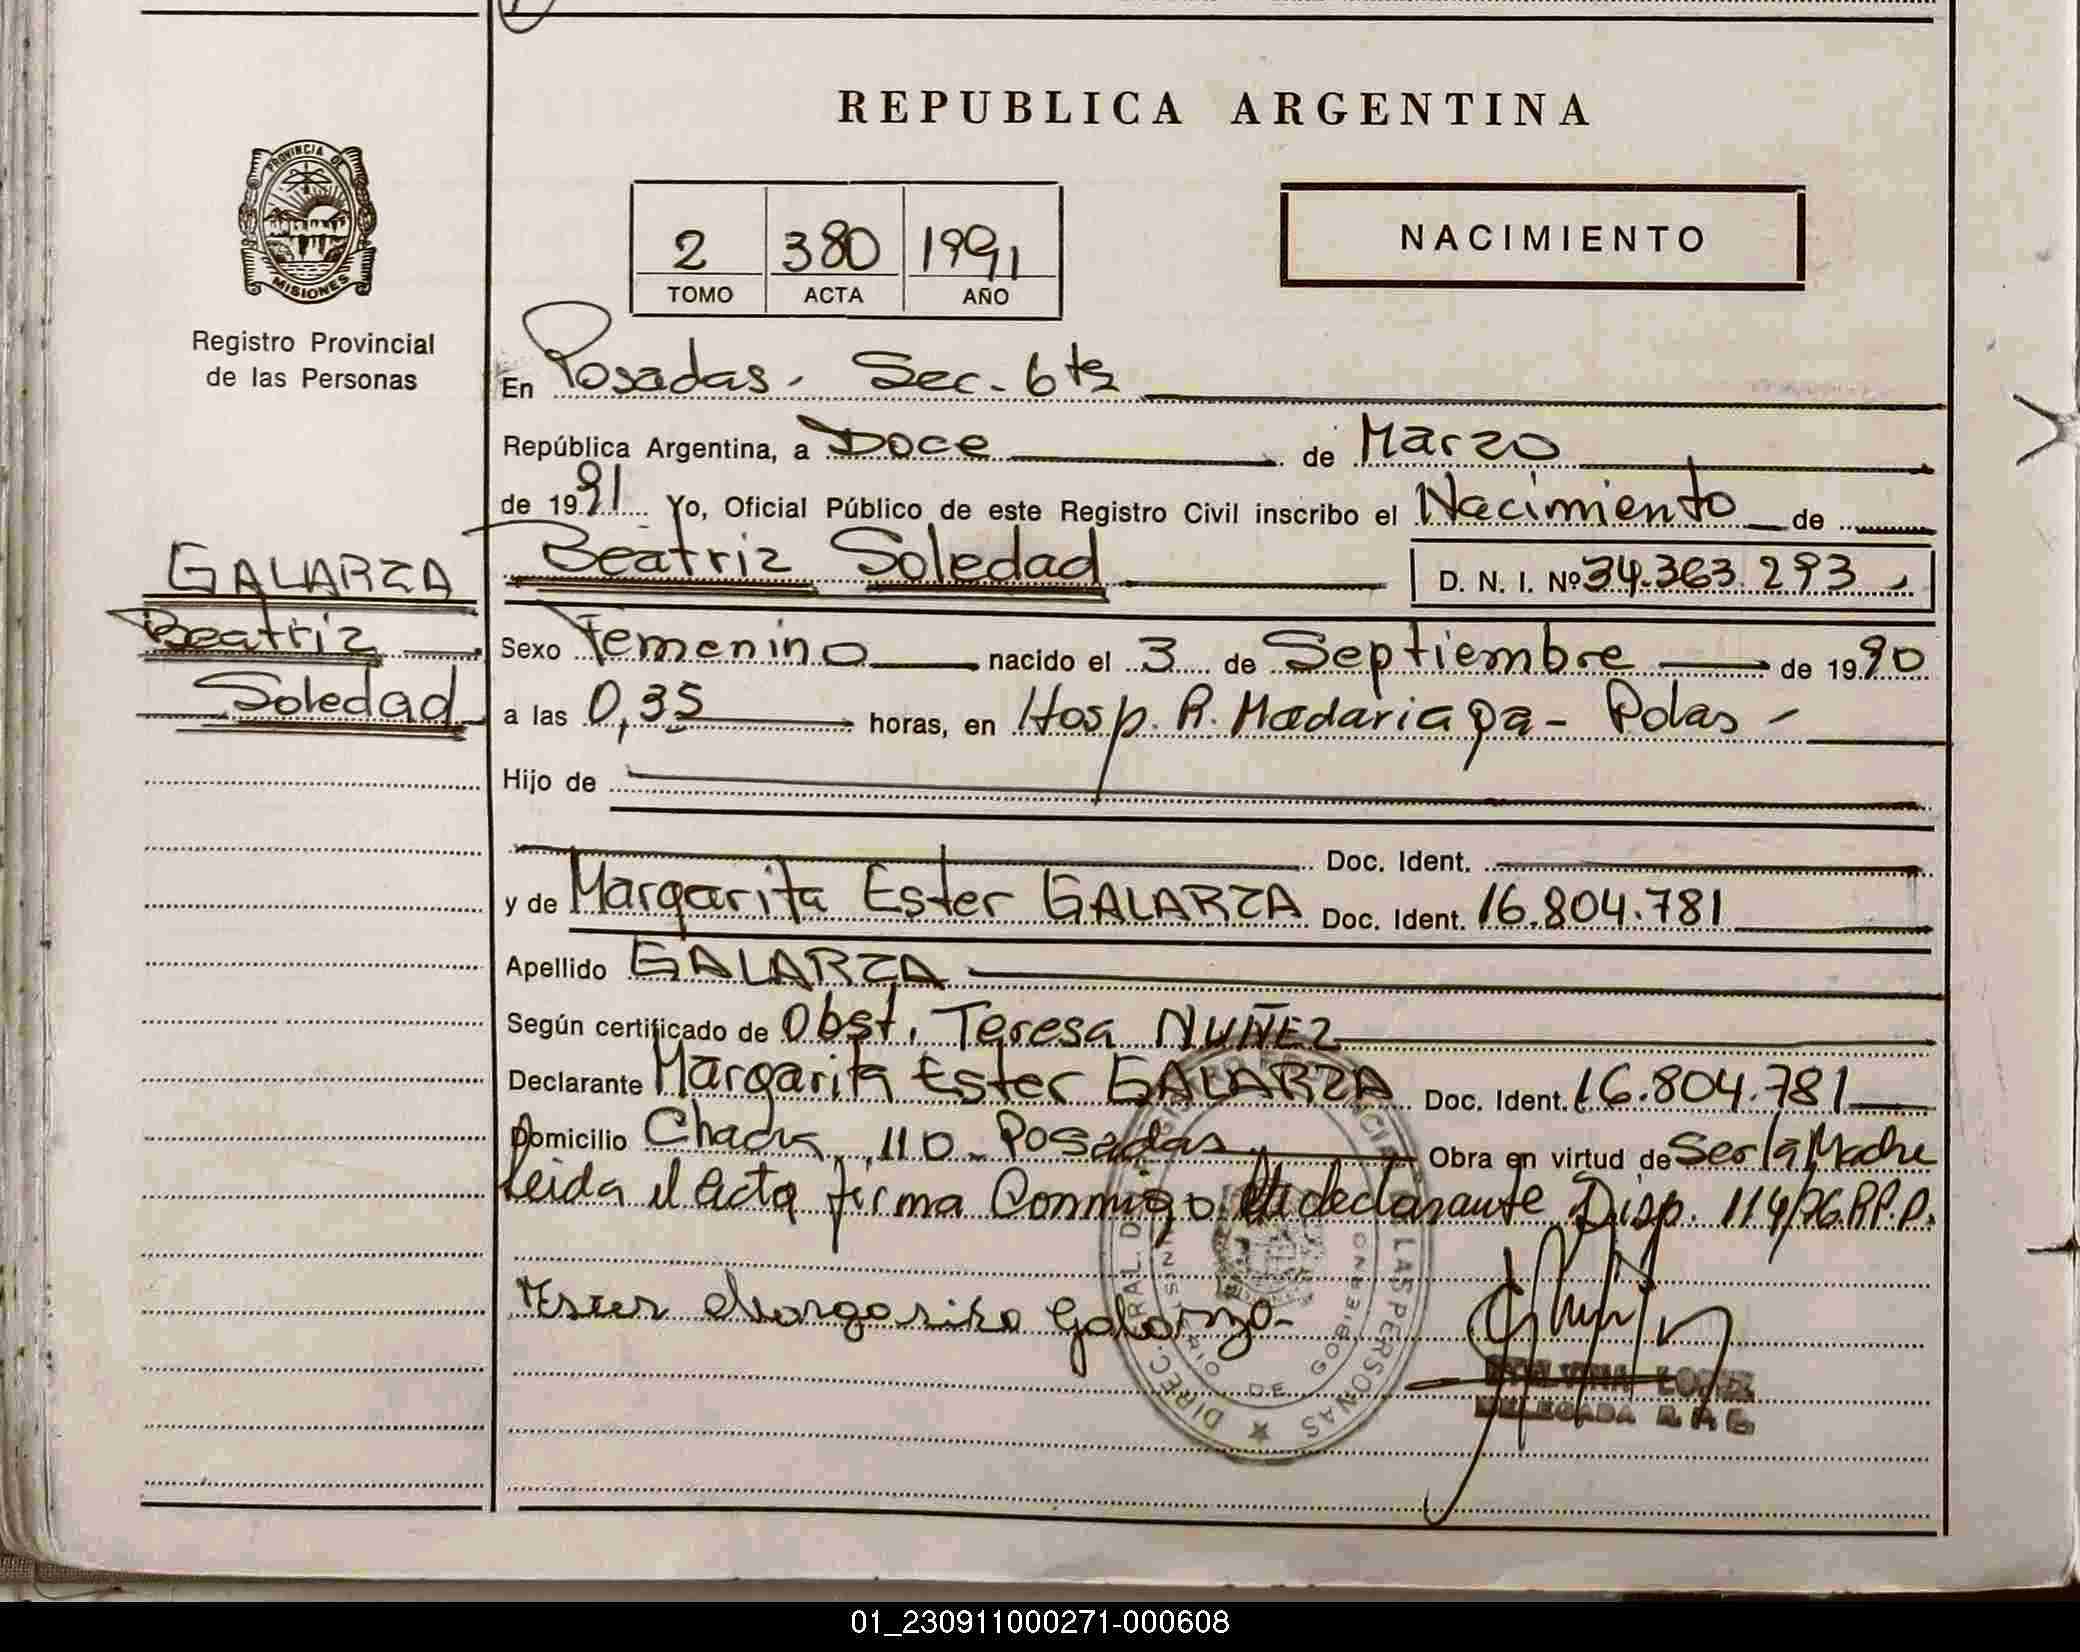 REPUBLICA ARGENTINA
PROVINCIA DE
MISIONES
Registro Provincial
de las Personas
2 380 1991
TOMO ACTA AÑO
NACIMIENTO
En Posadas. Sec. 6ta
República Argentina, a Doce de Marzo
de 1991 Yo, Oficial Público de este Registro Civil inscribo el Nacimiento de
GALARZA
Beatriz
Soledad
Beatriz Soledad D. N. I. Nº 34.363.293
Sexo Femenino nacido el 3 de Septiembre de 1990
a las 0,35 horas, en Hosp. R. Madariaga - Pdas -
Hijo de
Doc. Ident.
y de Margarita Ester GALARZA Doc. Ident. 16.804.781
Apellido GALARZA
Según certificado de Obst. Teresa NUÑEZ
Declarante Margarita Ester GALARZA Doc. Ident. 16.804.781
Domicilio Chacra 110 - Posadas Obra en virtud de Ser la Madre
Leida el acta firma Conmigo declarante Disp. 114/76.R.P.P.
Ester Margarita Galarza
DIREC. GRAL. D LAS PERSONAS
DE GOBIERNO
LOPEZ
DELEGADA
01_230911000271-000608